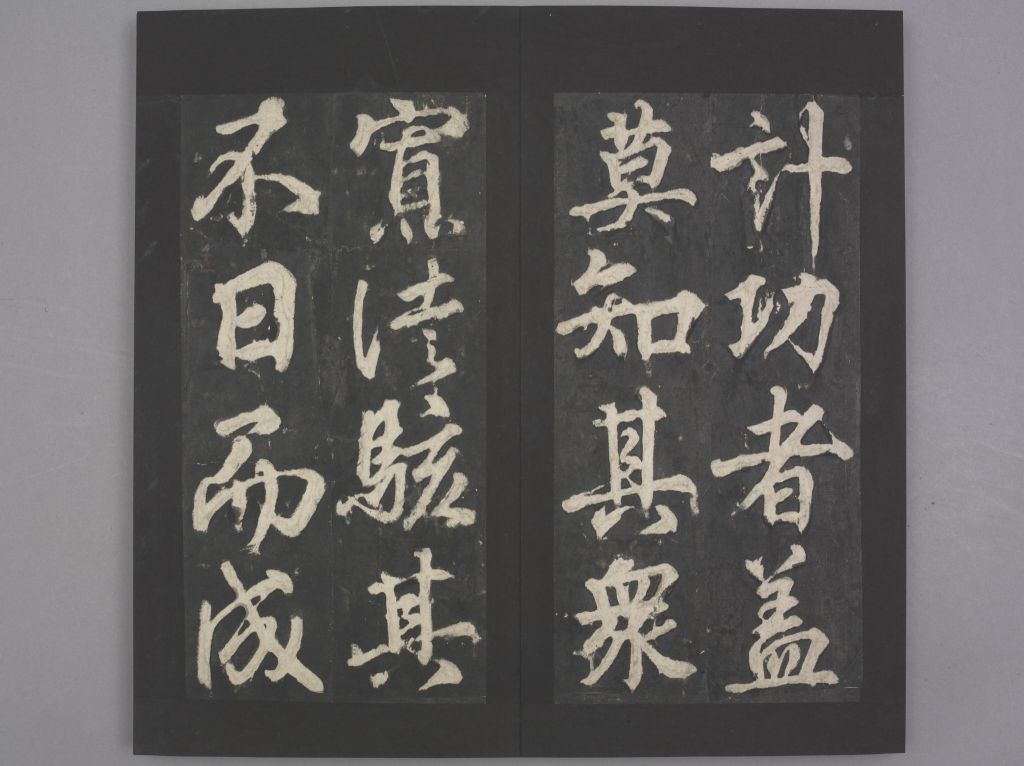 計功者蓋
莫知其衆
駭其
不日而成